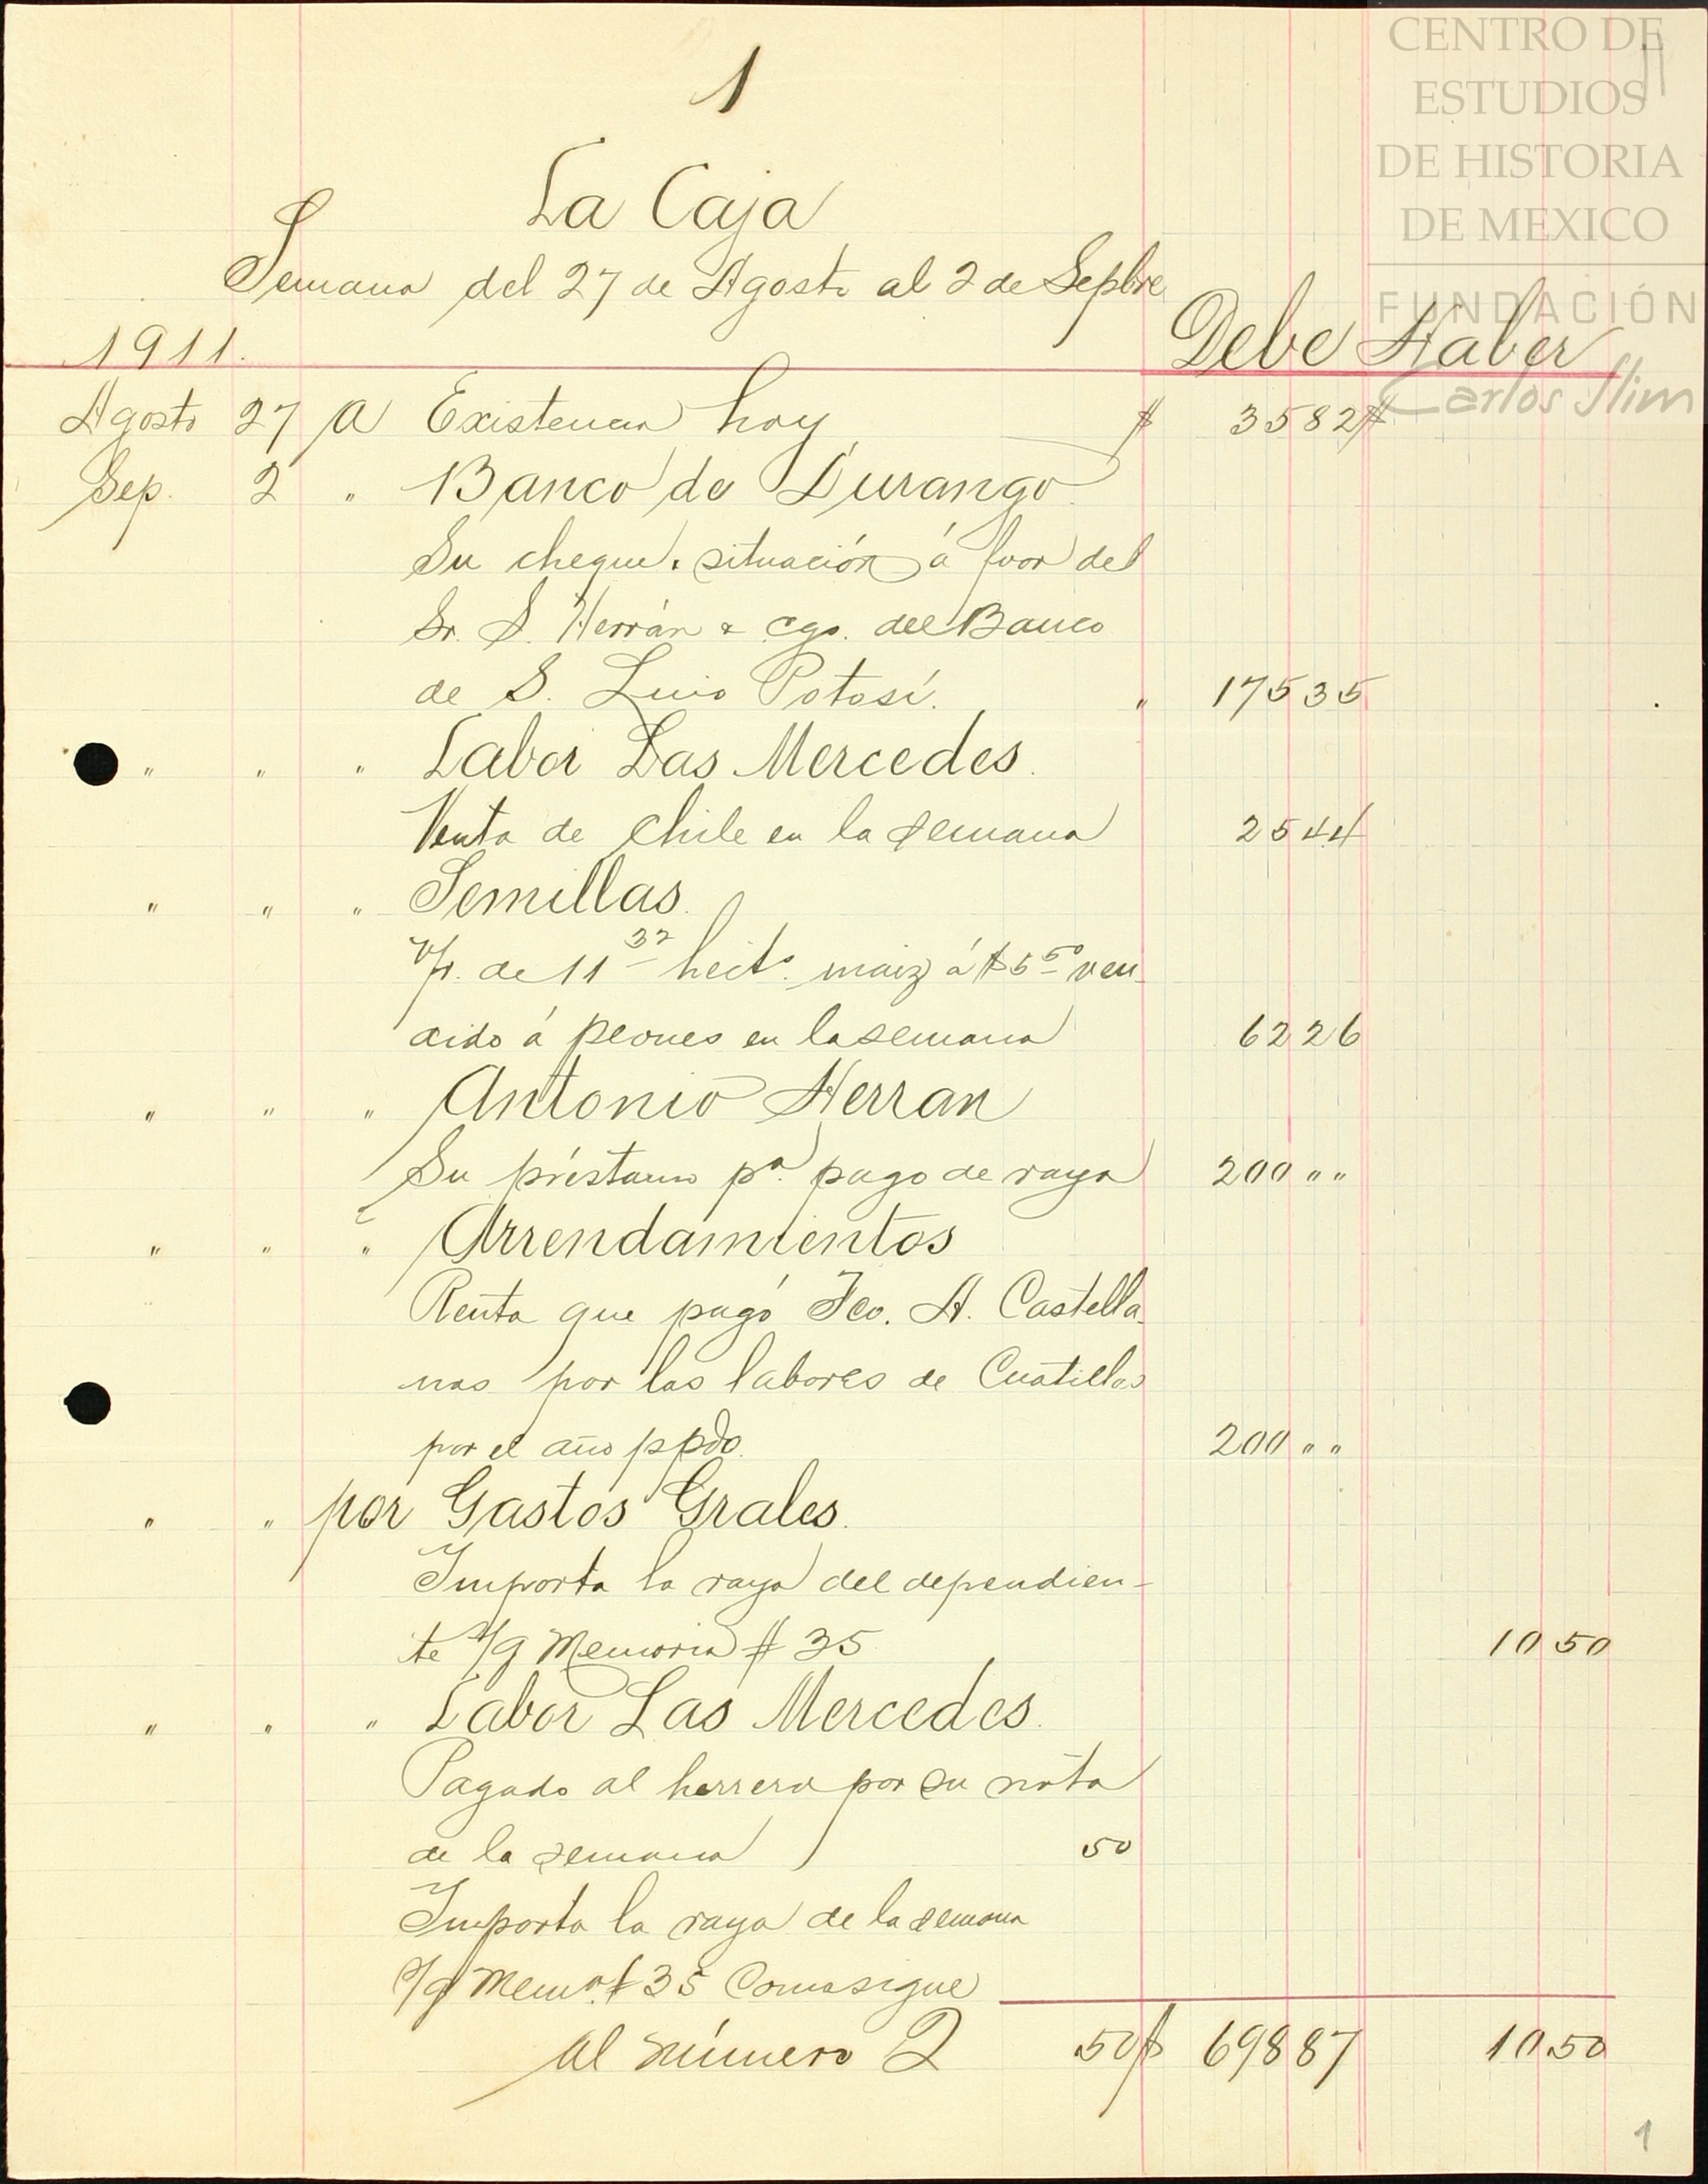 CENTRO DE
ESTUDIOS
DE HISTORIA
DE MEXICO
FUNDACIÓN
Carlos Slim
11
1
La Caja
Semana del 27 de Agosto al 2 de Sepbre
1911. Debe Haber
Agosto 27 A Existencia hoy $ 35 82 $
Sep. 2 " Banco de Durango
Su cheque situación á fvor del
Sr. S. Herrán & cgo. del Banco
de S. Luis Potosí. " 175 35
" " " Labor Las Mercedes.
Venta de chile en la semana 25 44
" " " Semillas.
v/r. de 11 32 hects. maiz á $5 50 ven-
cido á peones en la semana 62 26
" " " Antonio Herran
Su préstamo pa. pago de raya 200 " "
" " " Arrendamientos
Renta que pagó Fco. A. Castella-
nos por las labores de Cuatillos
por el año ppdo. 200 " "
" " por Gastos Grales.
Importa la raya del dependien-
te s/g Memoria # 35 10 50
" " " Labor Las Mercedes.
Pagado al herrero por su nota
de la semana 50
Importa la raya de la semana
s/g Mema. # 35 Como sigue
Al número 2 50 $ 698 87 10 50
1